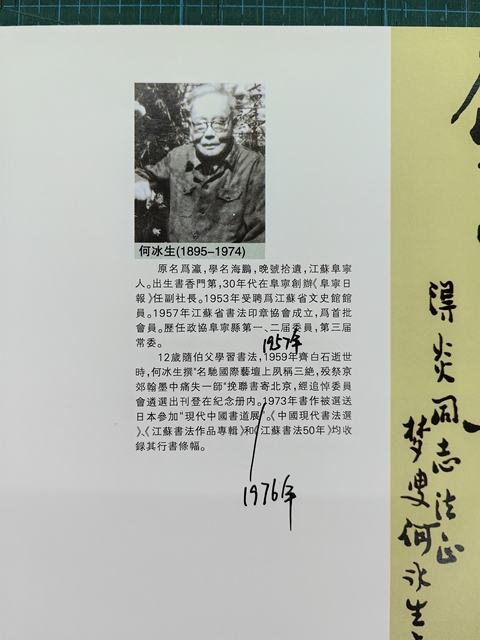 何冰生(1895-1974)
原名爲瀛，學名海鵬，晚號拾遺，江蘇阜寧
人。出生書香門第，30年代在阜寧創辦《阜寧日
報》任副社長。1953年受聘爲江蘇省文史館館
員。1957年江蘇省書法印章協會成立，爲首批
會員。歷任政協阜寧縣第一、二届委員，第三届
常委。
1957年
12歲隨伯父學習書法，1959年齊白石逝世
時，何冰生撰"名馳國際藝壇上夙稱三絶，殁祭京
郊翰墨中痛失一師"挽聯書寄北京，經追悼委員
會遴選出刊登在紀念册内。1973年書作被選送
日本參加"現代中國書道展"。《中國現代書法選》
、《江蘇書法作品專輯》和《江蘇書法50年》均收
録其行書條幅。
1976年
淂炎同志法正
梦叟何冰生